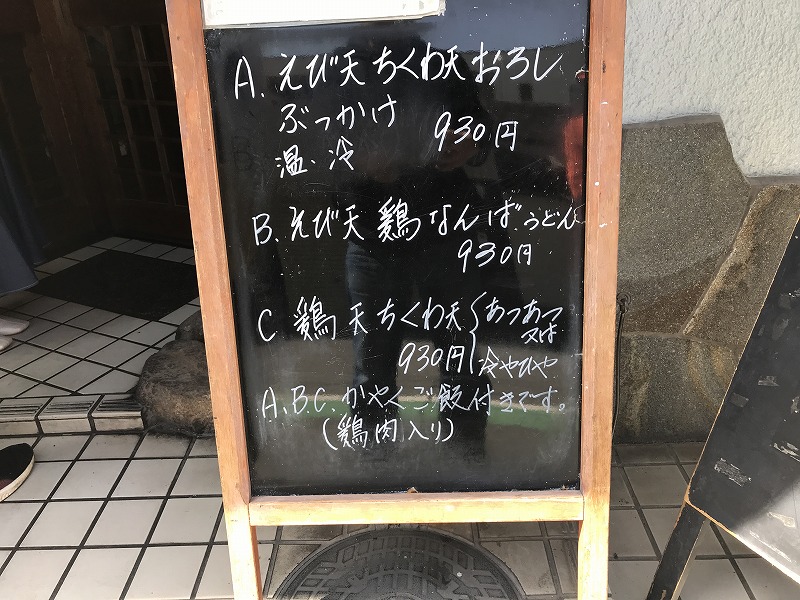 A. えび天ちくわ天おろし
ぶっかけ 930円
温・冷
B. えび天 鶏なんばうどん
930円
C 鶏天ちくわ天 あつあつ
又は
930円 冷やひや
A.B.C.かやくご飯付きです。
(鶏肉入り)